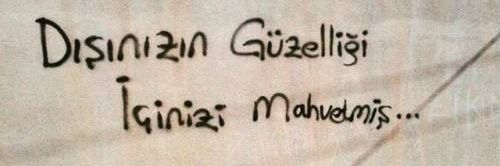 Dışınızın Güzelliği
İçinizi Mahvetmiş...